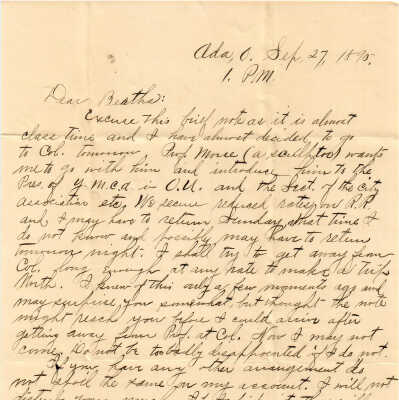 Ada, O. Sep, 27, 1895.
1. P.M.
Dear Beatha:
Excuse this brief note as it is almost
class time and I have almost decided, to go
to Col. tomorrow. Prof. Morse (a sculptor) wants
me to go with him and introduce him to the
Pres. of Y.M.C.A. in O.U. and the Sect. of the City
Association etc, We secure reduced rates on R.R.
and, I may have to return Sunday, what time I
do not know and possibly may have to return
tomorrow night. I shall try to get away from
Col. long enough at any rate to make a trip
North. I knew of this only a few moments ago and
may surprise you somewhat but thought the note
might reach you before I could arrive after
getting away from Prof. at Col. Now I may not
come, Do not be too badly disappointed if I do not.
If you, have any other arrangement do
not spoil the same on my account. I will not